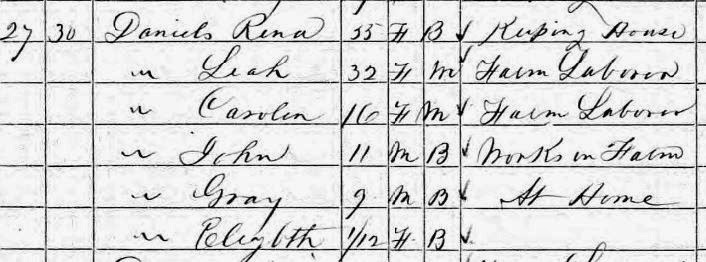 27 30 Daniels Rena 55 F B ✓ Keeping House
" Leah 32 F M ✓ Farm Laborer
" Carolin 16 F M ✓ Farm Laborer
" John 11 M B ✓ Works on Farm
" Gray 9 M B ✓ At Home
" Elizbth 1/12 F B ✓